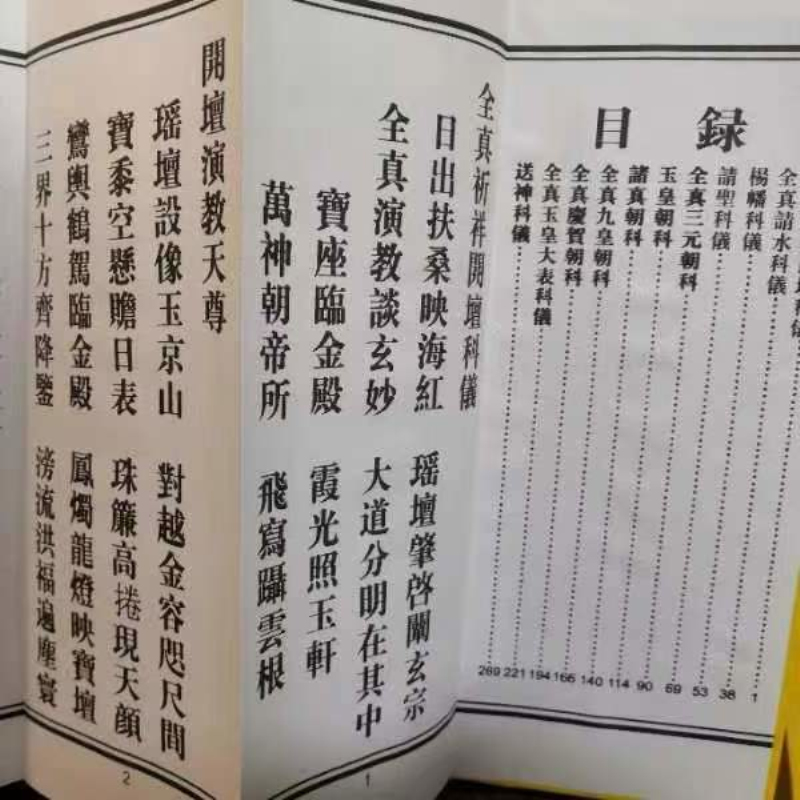 目錄
壇科儀 1
全真請水科儀 38
楊幡科儀 53
請聖科儀 69
全真三元朝科 90
玉皇朝科 114
諸真朝科 140
全真九皇朝科 166
全真慶賀朝科 194
全真玉皇大表科儀 221
送神科儀 269
全真祈祥開壇科儀
日出扶桑映海紅 瑶壇肇啓闡玄宗
全真演教談玄妙 大道分明在其中
寶座臨金殿 霞光照玉軒
萬神朝帝所 飛寫躡雲根
1
開壇演教天尊
瑶壇設像玉京山 對越金容咫尺間
寶黍空懸贍日表 珠簾高捲現天顏
鸞輿鶴駕臨金殿 鳳燭龍燈映寶壇
三界十方齊降鑒 滂流洪福遍塵寰
2